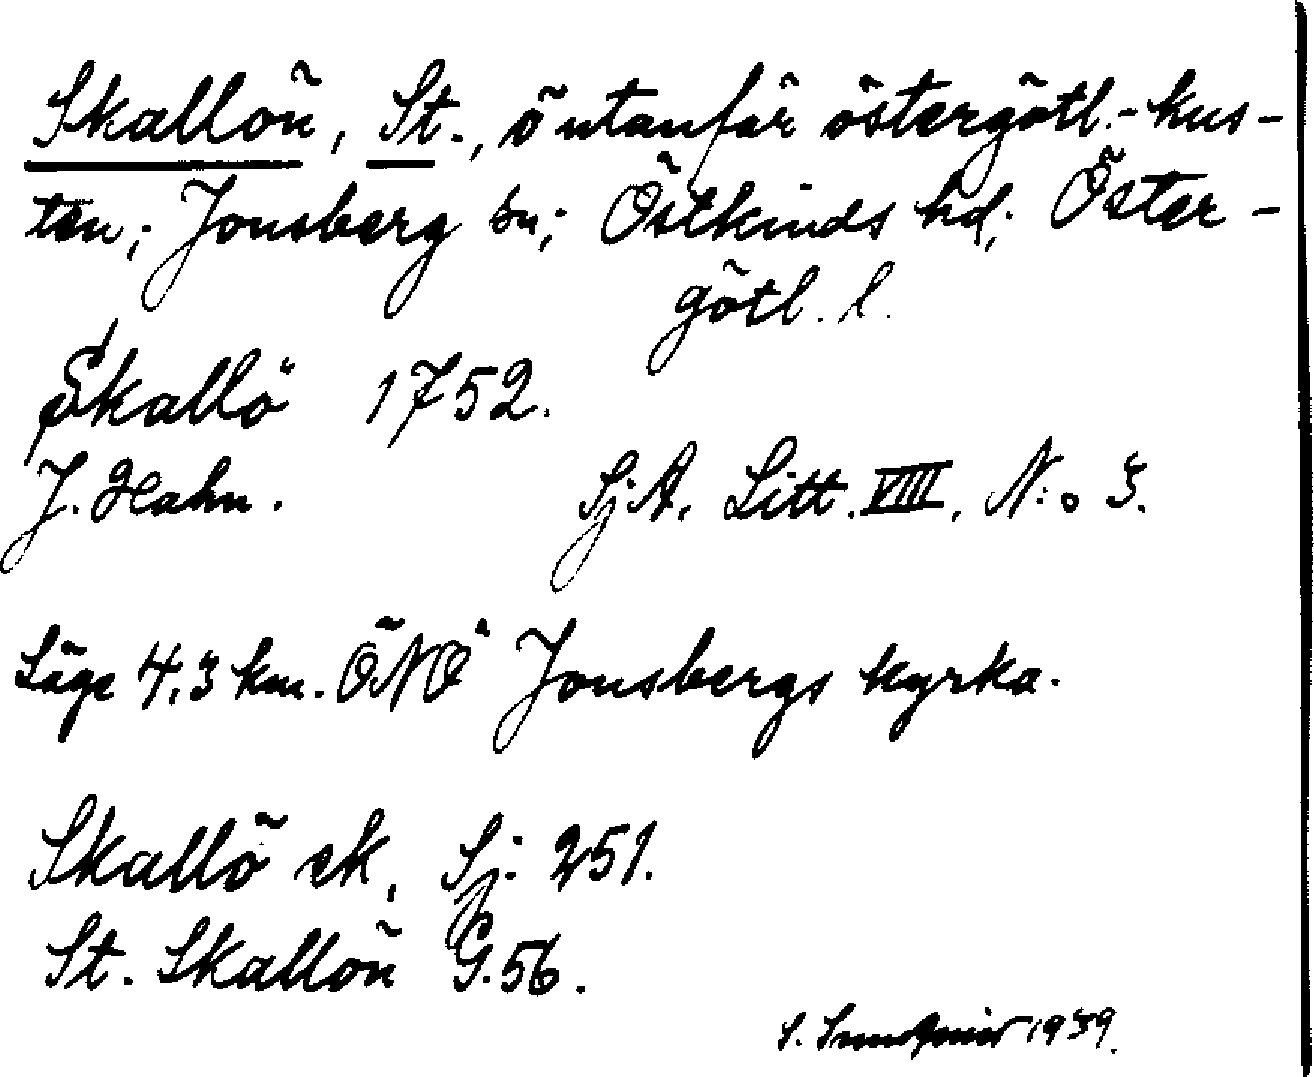 Skallön, St., ö utanför östergötl.-kus-
ten; Jonsberg sn; Östkinds hd; Öster-
götl. l.
Skallö 1752.
J. Hahn. SjA. Litt. VIII, N:o 3.
Läge 4,3 km. ÖNÖ Jonsbergs kyrka.
Skallö ek. Sj. 251.
St. Skallön G.56.
S. 1939.